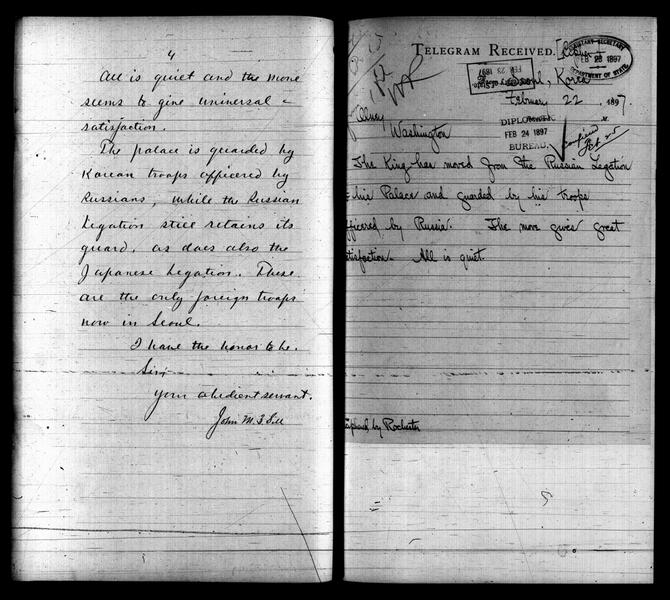 4
All is quiet and the move
seems to give universal
satisfaction.
The palace is guarded by
Korean troops officered by
Russians, while the Russian
Legation still retains its
guard, as does also the
Japanese Legation. These
are the only foreign troops
now in Seoul.
I have the honor to be.
Sir,
Your obedient servant.
John M. B. Sill
TELEGRAM RECEIVED.
FEB 23 1897
FEB 23 1897
DEPARTMENT OF STATE.
Seoul, Korea
February 22, 1897.
Olney
Washington
DIPLOMATIC
FEB 24 1897
BUREAU.
The King has moved from the Russian Legation
his Palace and guarded by his troops
officered by Russia. The move gives great
satisfaction. All is quiet.
by Rochester